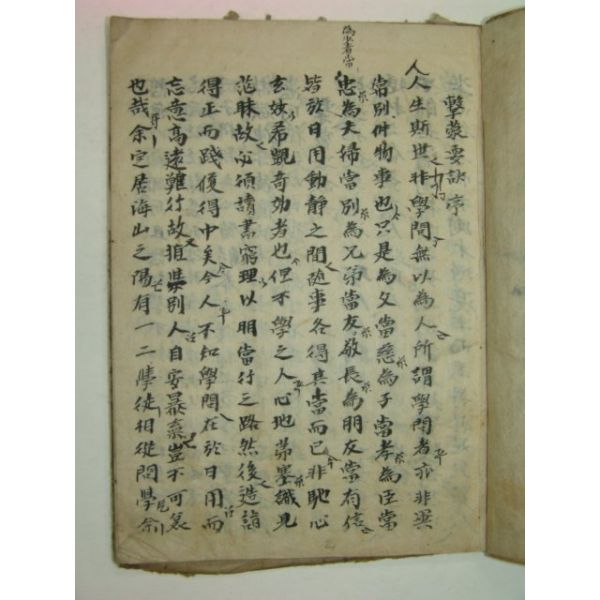 擊蒙要訣序
人生斯世非學問無以為人所謂學問者亦非異
常別件物事也只是為父當慈為子當孝為臣當
為少者當
忠為夫婦當別為兄弟當友敬長為朋友當有信
皆於日用動靜之間隨事各得其當而已非馳心
玄妙希覬奇効者也但不學之人心地茅塞識見
茫昧故必須讀書窮理以明當行之路然後造詣
得正而踐履得中矣今人不知學問在於日用而
忘意高遠難行故推與別人自安暴棄豈不可哀
也哉余定居海山之陽有一二學徒相從問學余